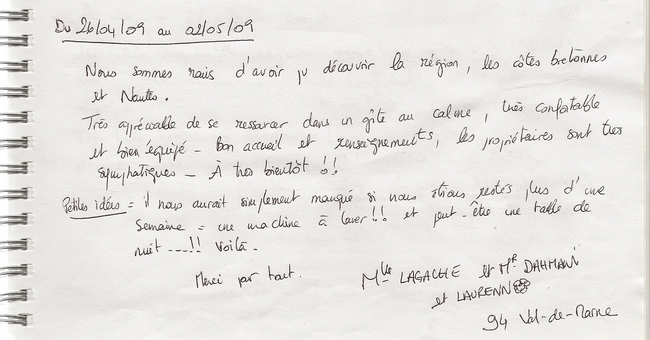 Du 26/04/09 au 02/05/09
Nous sommes ravis d'avoir pu découvrir la région, les côtes bretonnes
et Nantes.
Très appréciable de se ressourcer dans un gîte au calme, très confortable
et bien équipé - Bon accueil et renseignements, les propriétaires sont très
sympathiques - À très bientôt !!
Petites idées = il nous aurait simplement manqué si nous étions restés plus d'une
semaine = une machine à laver !! et peut-être une table de
nuit ---!! Voilà -
Merci pour tout.
Mlle LAGACHE et Mr DAHMANI
et LAURENN
94 Val-de-Marne